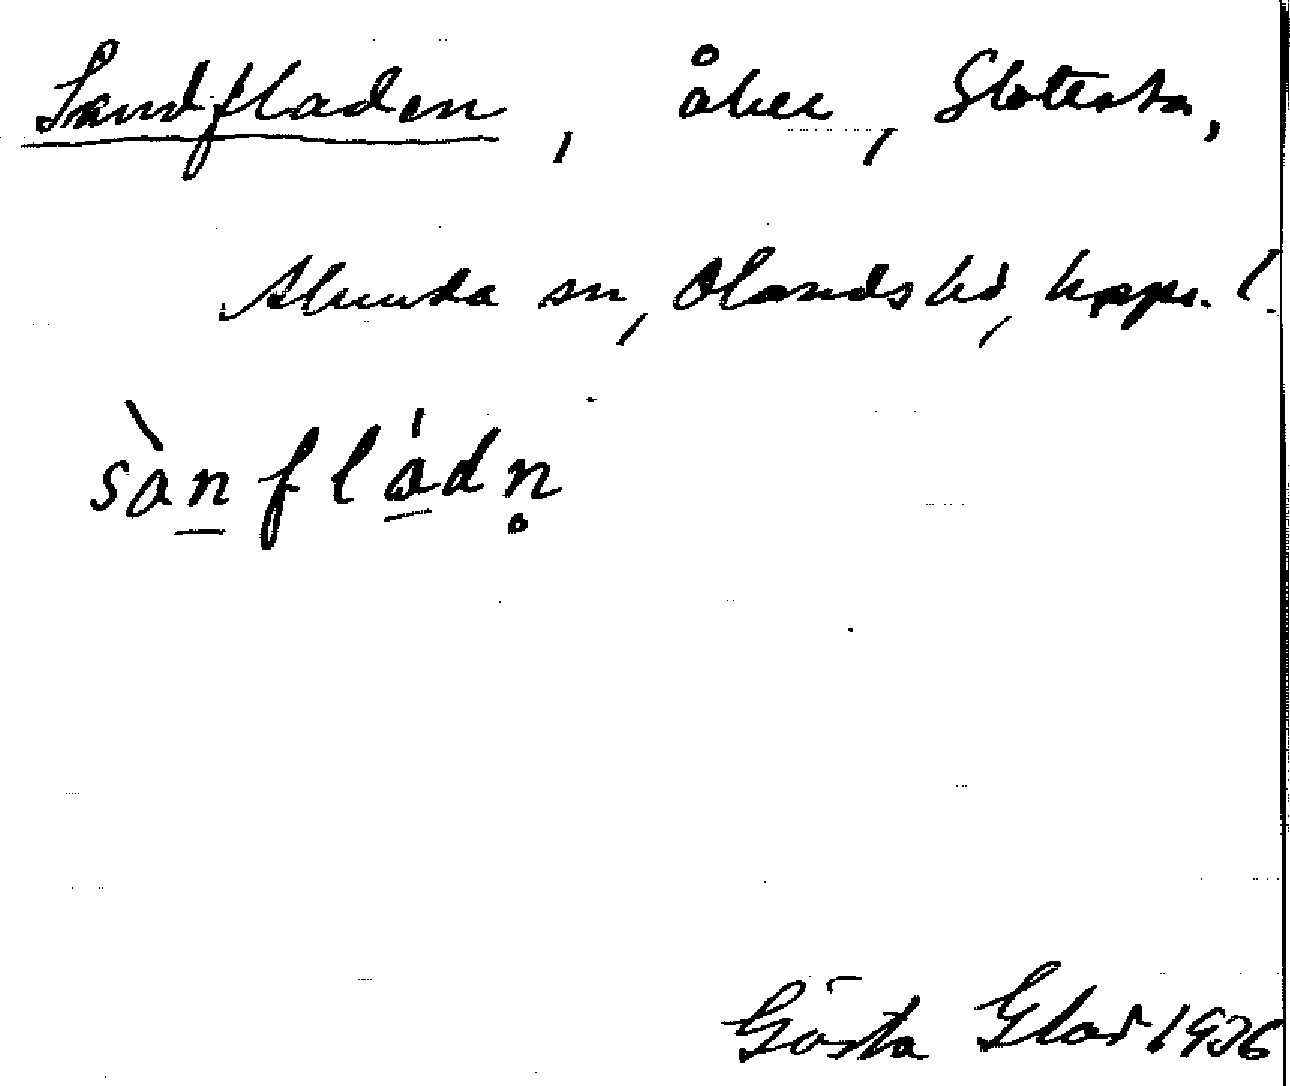 Sandfladen, åker,
Alunda sn, Olands hd, Upps. l.
sànfládn̥
Gösta Glad 1936